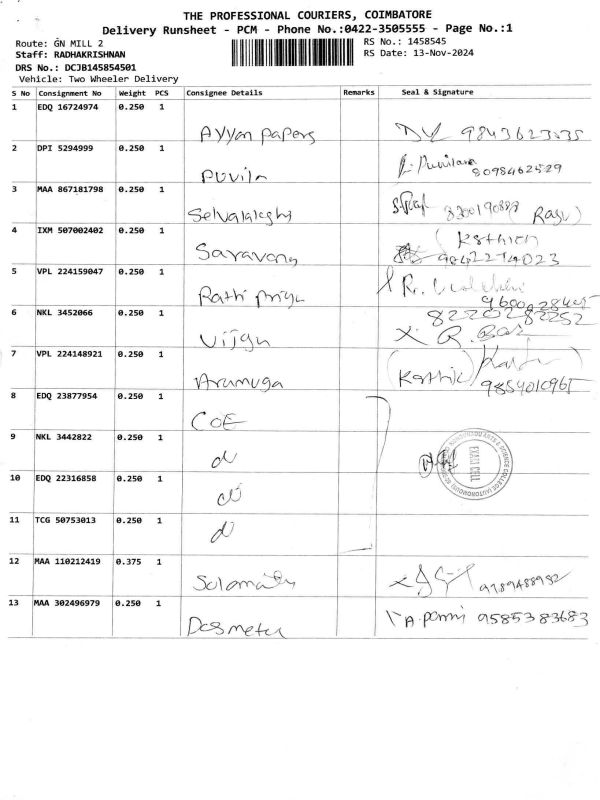 THE PROFESSIONAL COURIERS, COIMBATORE
Delivery Runsheet - PCM - Phone No.:0422-3505555 - Page No.:1
Route: GN MILL 2
RS No.: 1458545
Staff: RADHAKRISHNAN
RS Date: 13-Nov-2024
DRS No.: DCJB145854501
Vehicle: Two Wheeler Delivery
S No Consignment No Weight PCS Consignee Details Remarks Seal & Signature
1 EDQ 16724974 0.250 1
Ayyan papers 9843623535
2 DPI 5294999 0.250 1
Puvila 8098462529
3 MAA 867181798 0.250 1
8200190888
4 IXM 507002402 0.250 1
Karthick
Saravana 9842274023
5 VPL 224159047 0.250 1
Rathi priya
6 NKL 3452066 0.250 1
8220282252
Vijay
7 VPL 224148921 0.250 1
Arumuga (Karthik) 9854010965
8 EDQ 23877954 0.250 1
COE
9 NKL 3442822 0.250 1
EXAM CELL
10 EDQ 22316858 0.250 1
11 TCG 50753013 0.250 1
12 MAA 110212419 0.375 1
9789488952
13 MAA 302496979 0.250 1
9585383683